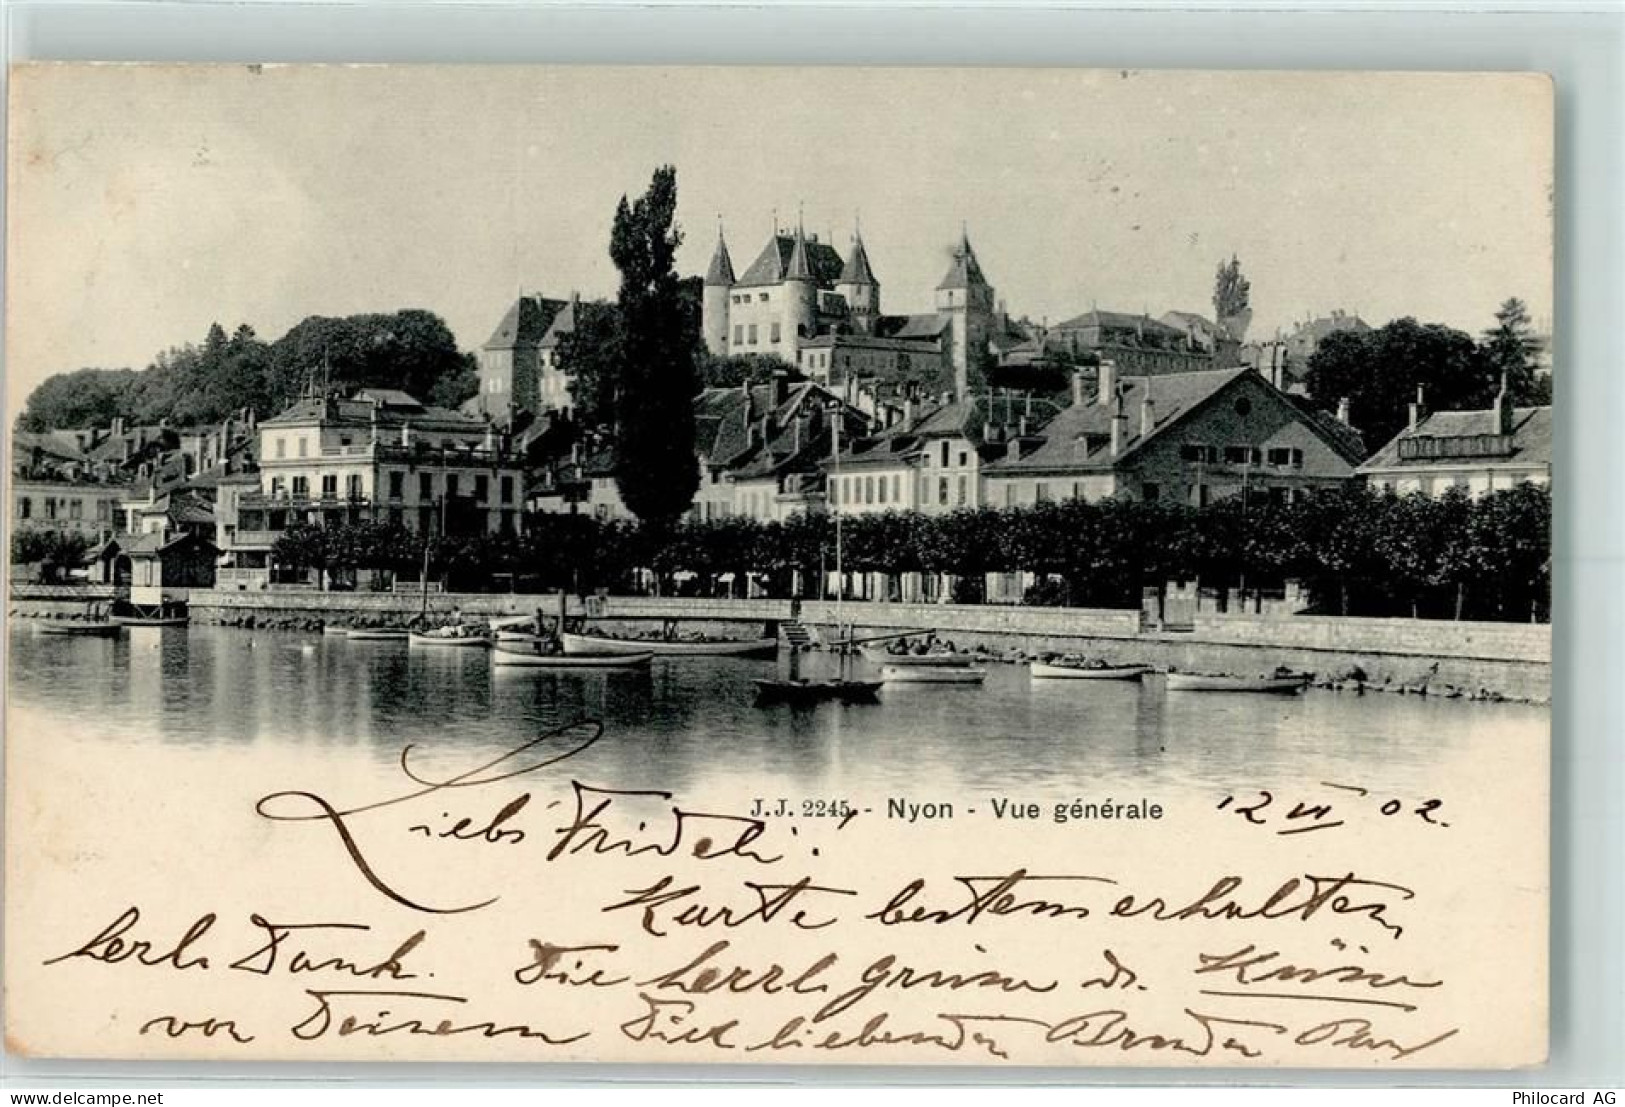 J.J. 2245. - Nyon - Vue générale
12 VI 02.
Liebs Frideli!
Karte bestens erhalten
herzl. Dank. Die herzl Grüsse &. Küsse
von Deinem Dich liebenden Bruder Paul
delcampe.net
Philocard AG